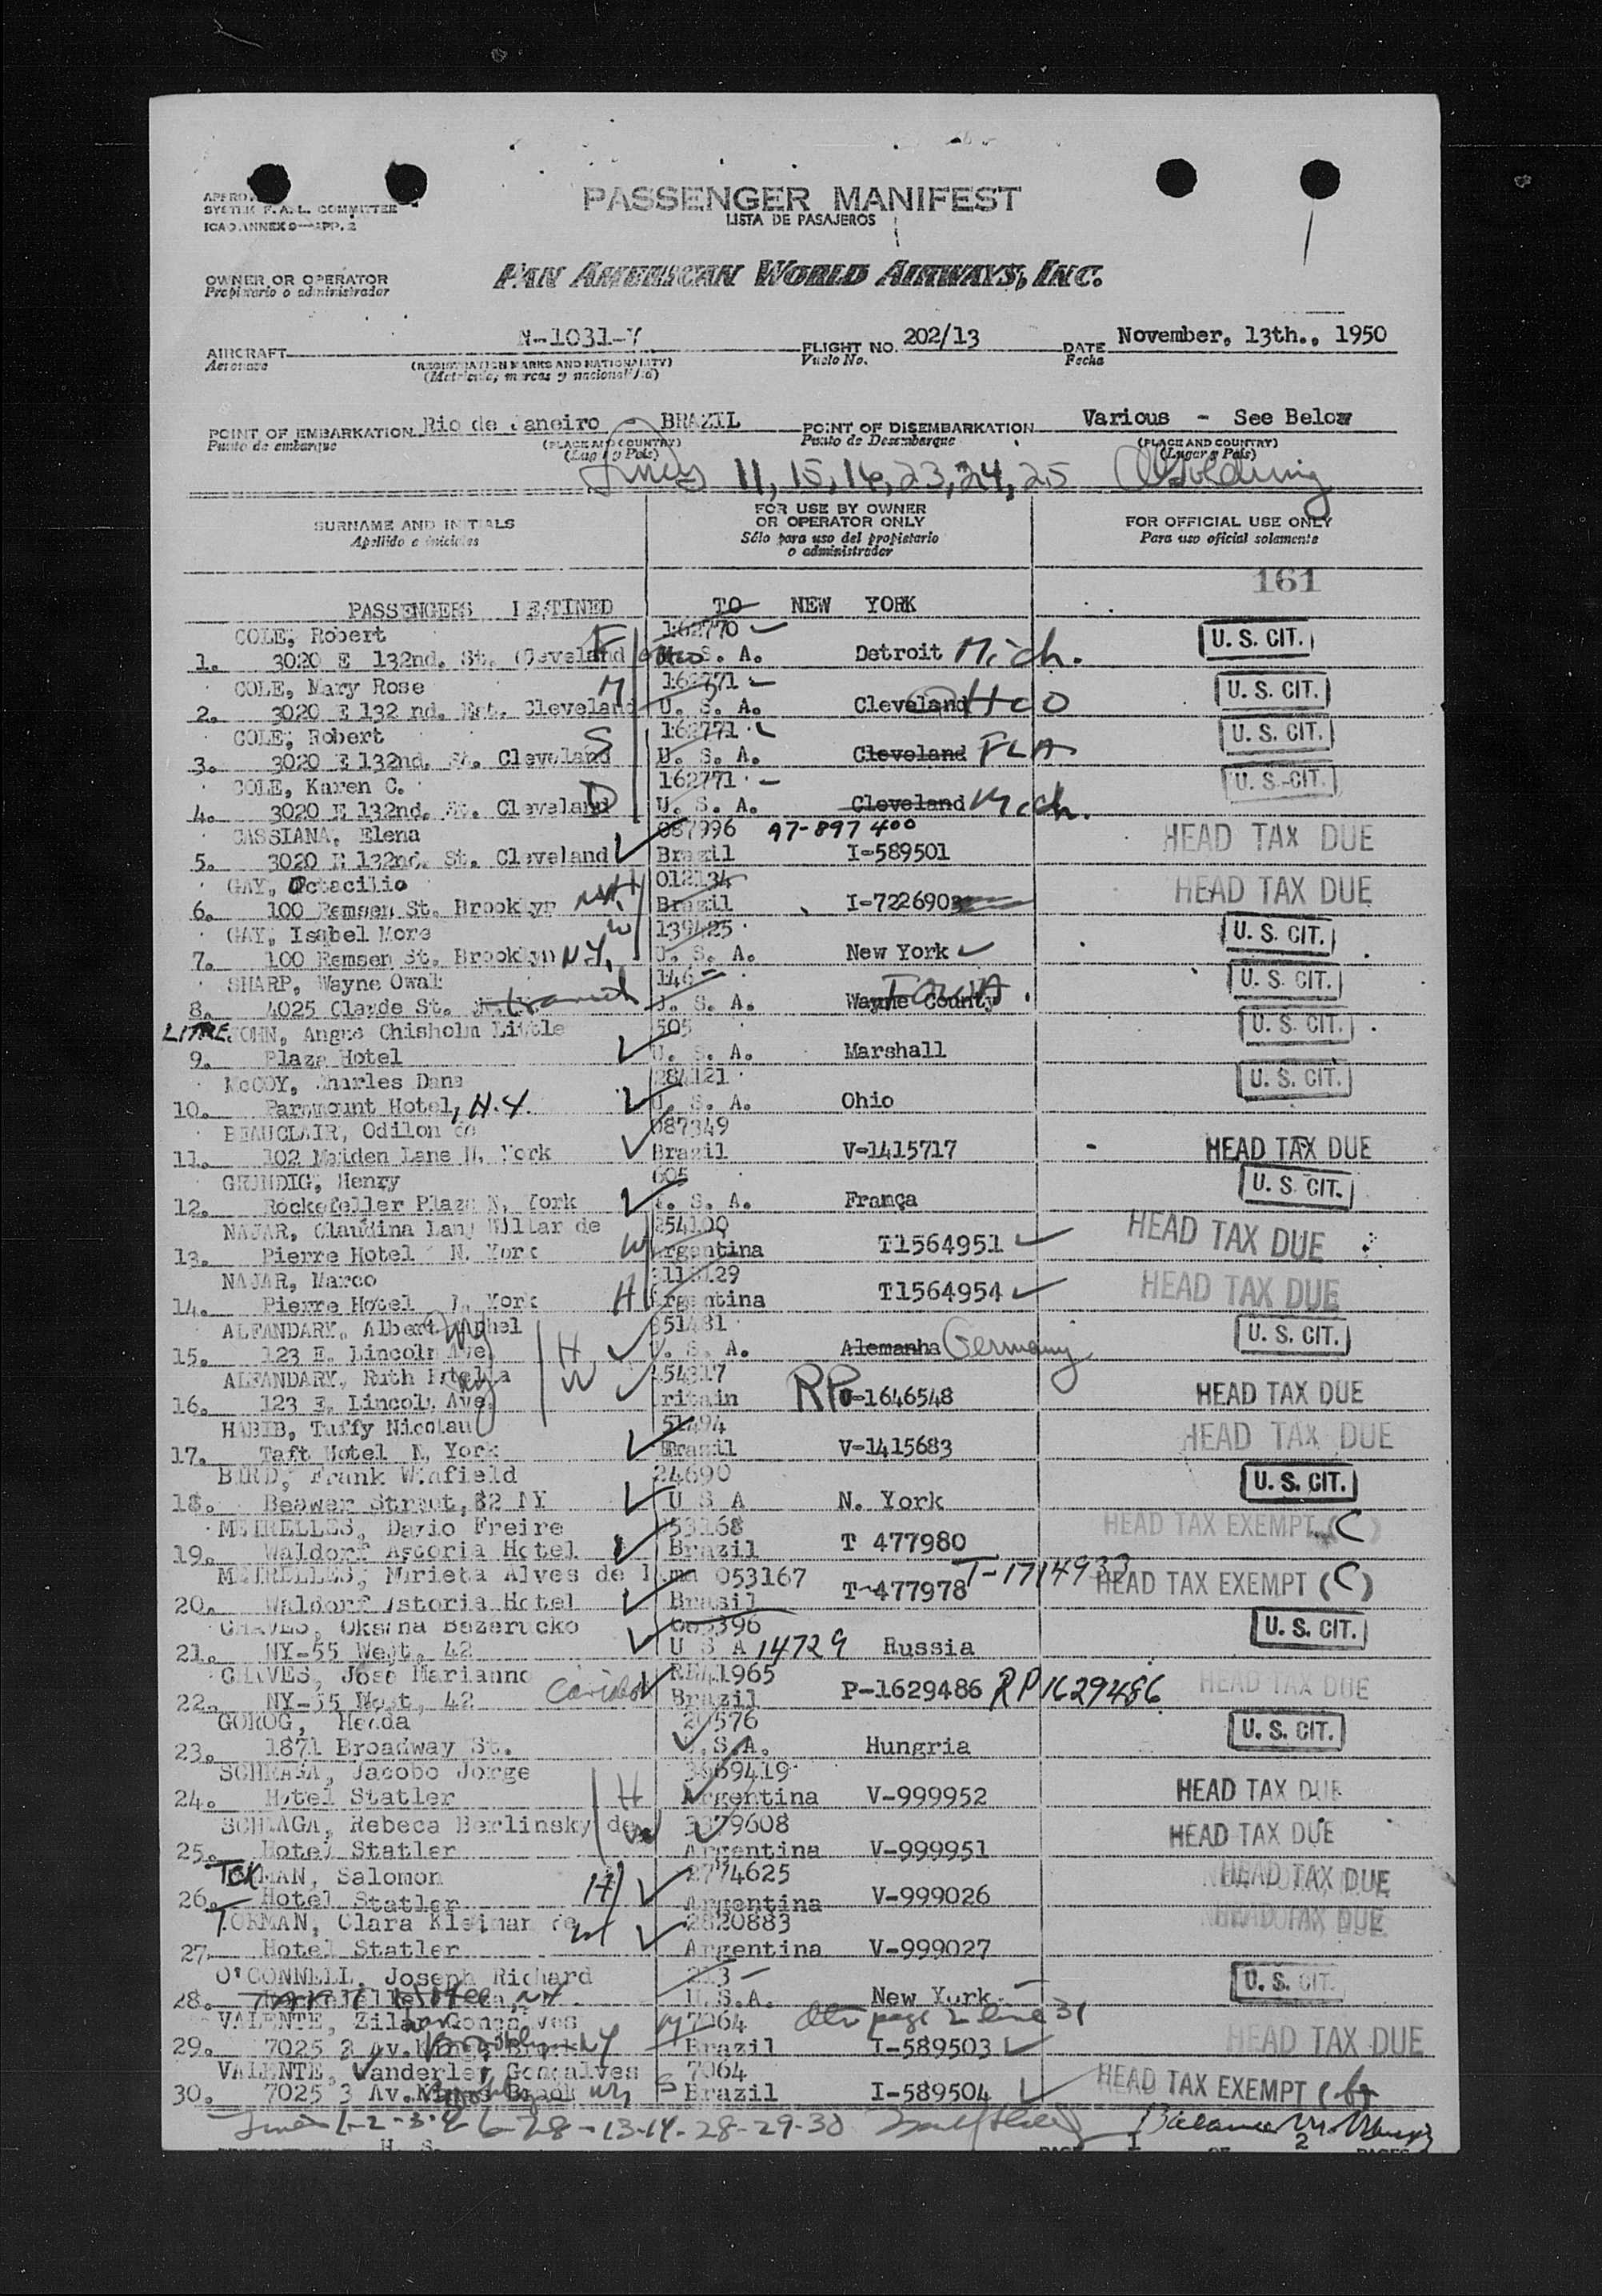 SYSTEM F. A. L. COMMITTEE
ICAO ANNEX 9—APP. 2
PASSENGER MANIFEST
LISTA DE PASAJEROS
OWNER OR OPERATOR
Propietario o administrador
PAN AMERICAN WORLD AIRWAYS, INC.
AIRCRAFT N-1031-V FLIGHT NO. 202/13 DATE November, 13th., 1950
Aeronave (REGISTRATION MARKS AND NATIONALITY) Vuelo No. Fecha
(Matrícula, marcas y nacionalidad)
POINT OF EMBARKATION Rio de Janeiro - BRAZIL POINT OF DISEMBARKATION Various - See Below
Punto de embarque (PLACE AND COUNTRY) Punto de Desembarque (PLACE AND COUNTRY)
(Lugar y País) (Lugar y País)
Lines 11, 15, 16, 23, 24, 25 Golding
SURNAME AND INITIALS FOR USE BY OWNER OR OPERATOR ONLY FOR OFFICIAL USE ONLY
Apellido e iniciales Sólo para uso del propietario o administrador Para uso oficial solamente
161
PASSENGERS DESTINED TO NEW YORK
COLE, Robert 162770 U. S. CIT.
1. 3020 E 132nd. St. Cleveland U. S. A. Detroit Mich.
COLE, Mary Rose M 162771 U. S. CIT.
2. 3020 E 132 nd. Cleveland U. S. A. Cleveland
COLE, Robert S 162771 U. S. CIT.
3. 3020 E 132nd. St. Cleveland U. S. A. Cleveland FLA
COLE, Karen C. D 162771 U. S. CIT.
4. 3020 E 132nd. St. Cleveland U. S. A. Cleveland Mich.
CASSIANA, Elena 087996 A7-897 400 HEAD TAX DUE
5. 3020 E 132nd. St. Cleveland Brazil I-589501
GAY, Octacilio H 012134 HEAD TAX DUE
6. 100 Remsen St. Brooklyn N.Y. Brazil I-722690
GAY, Isabel More W 139425 U. S. CIT.
7. 100 Remsen St. Brooklyn N.Y. U. S. A. New York
SHARP, Wayne Owal 146 U. S. CIT.
8. 4025 Clayde St. U. S. A. Wayne County
LITTLE JOHN, Angus Chisholm Little 505 U. S. CIT.
9. Plaza Hotel U. S. A. Marshall
McCOY, Charles Dana 284121 U. S. CIT.
10. Paramount Hotel, N.Y. U. S. A. Ohio
BEAUCLAIR, Odilon de 087349
11. 102 Maiden Lane N. York Brazil V-1415717 HEAD TAX DUE
GRUNDIG, Henry 605 U. S. CIT.
12. Rockefeller Plaza N. York U. S. A. França
NAJAR, Claudina Lany Villar de 254100 HEAD TAX DUE
13. Pierre Hotel N. York W Argentina T1564951
NAJAR, Marco HEAD TAX DUE
14. Pierre Hotel N. York H Argentina T1564954
ALFANDARY, Albert U. S. CIT.
15. 123 E. Lincoln Ave H U. S. A. Alemanha Germany
ALFANDARY, Ruth W
16. 123 E. Lincoln Ave. Britain RP 0-1646548 HEAD TAX DUE
HABIB, Tuffy Nicolau 51494 HEAD TAX DUE
17. Taft Hotel N. York Brazil V-1415683
BIRD, Frank Winfield 24690 U. S. CIT.
18. Beawer Street, 82 NY U S A N. York
MEIRELLES, Dario Freire 53168 HEAD TAX EXEMPT (C)
19. Waldorf Astoria Hotel Brazil T 477980
MEIRELLES, Marieta Alves de Lima 053167 T-1714933
20. Waldorf Astoria Hotel Brasil T-477978 HEAD TAX EXEMPT (C)
CHAVES, Oksana Bezerucko U. S. CIT.
21. NY-55 West, 42 U S A 14729 Russia
CHAVES, José Marianno
22. NY-55 West, 42 Brazil P-1629486 RP 1629486 HEAD TAX DUE
GOROG, Hedda 20576 U. S. CIT.
23. 1871 Broadway St. U.S.A. Hungria
SCHRAGA, Jacobo Jorge 3669419
24. Hotel Statler H Argentina V-999952 HEAD TAX DUE
SCHRAGA, Rebeca Berlinsky de W 3379608 HEAD TAX DUE
25. Hotel Statler Argentina V-999951
TORMAN, Salomon 2774625 HEAD TAX DUE
26. Hotel Statler H Argentina V-999026
TORMAN, Clara Kleiman de W 2820883 HEAD TAX DUE
27. Hotel Statler Argentina V-999027
O'CONNELL, Joseph Richard 213 U. S. CIT.
28. U.S.A. New York
VALENTE, Zilar Gonçalves M 7064 page 2 line 31
29. 7025 3 Av. Brazil I-589503 HEAD TAX DUE
VALENTE, Vanderley Gonçalves 7064
30. 7025 3 Av. S Brazil I-589504 HEAD TAX EXEMPT (b)
Lines 1-2-3-4 6-7-8-13-14-28-29-30 Balance
H. S. PAGE 1 OF 2 PAGES